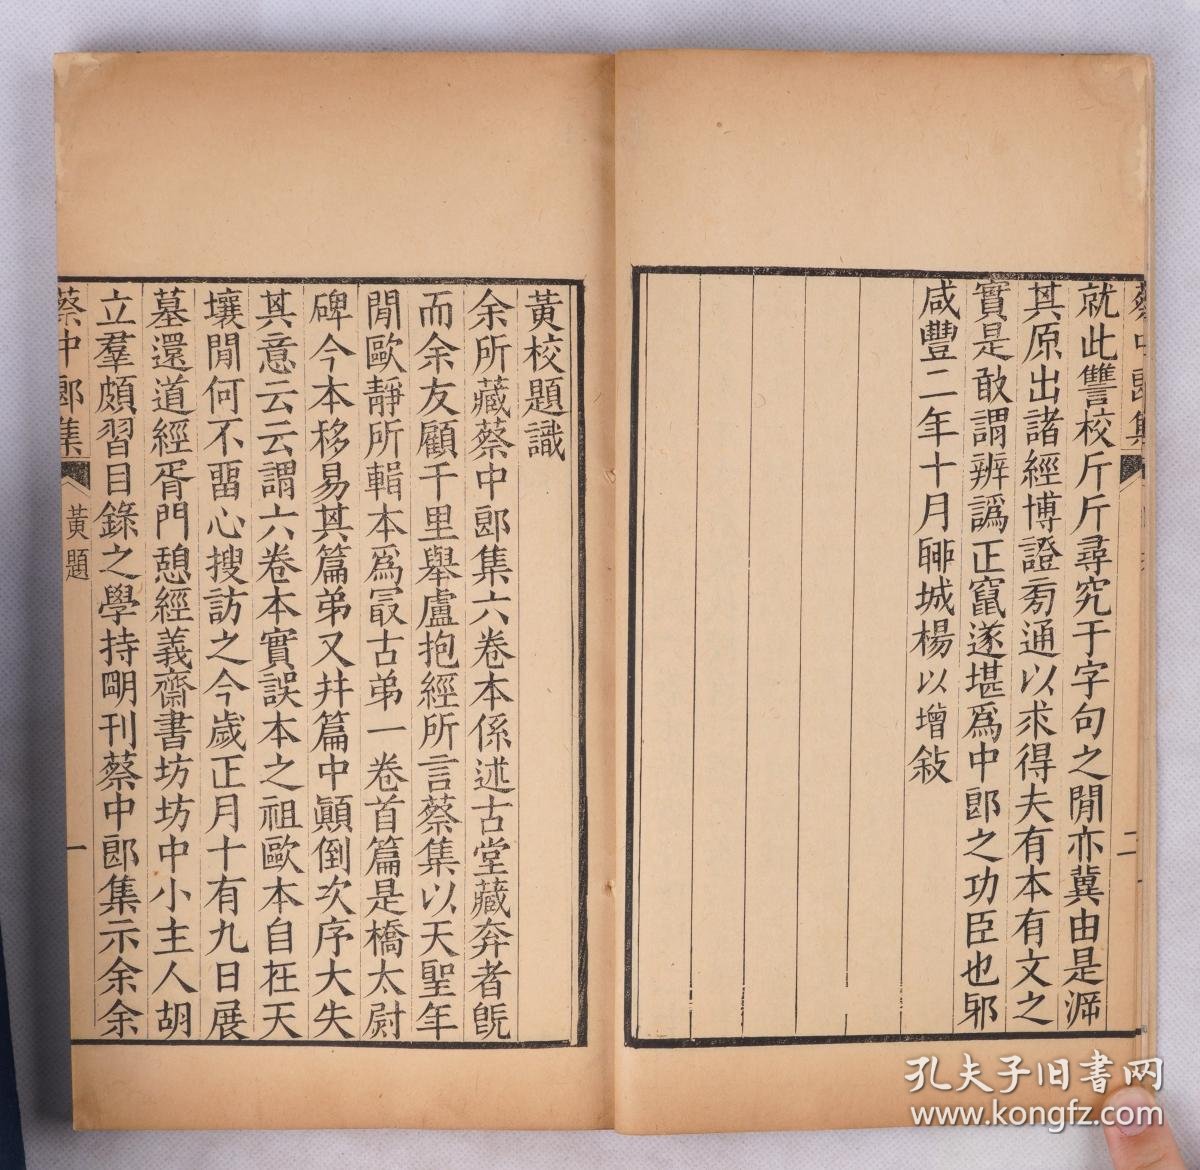 蔡中郎集
二
就此讐校斤斤尋究于字句之閒亦冀由是泝
其原出諸經博證旁通以求得夫有本有文之
實是敢謂辨譌正竄遂堪爲中郎之功臣也邪
咸豐二年十月聊城楊以增敍
黃校題識
余所藏蔡中郎集六卷本係述古堂藏弆者旣
而余友顧千里舉盧抱經所言蔡集以天聖年
閒歐靜所輯本爲冣古弟一卷首篇是橋太尉
碑今本移易其篇弟又幷篇中顚倒次序大失
其意云云謂六卷本實誤本之祖歐本自在天
壤閒何不畱心搜訪之今歲正月十有九日展
墓還道經胥門憩經義齋書坊坊中小主人胡
立羣頗習目錄之學持明刊蔡中郎集示余余
蔡中郎集
黃題
一
孔夫子旧书网
www.kongfz.com